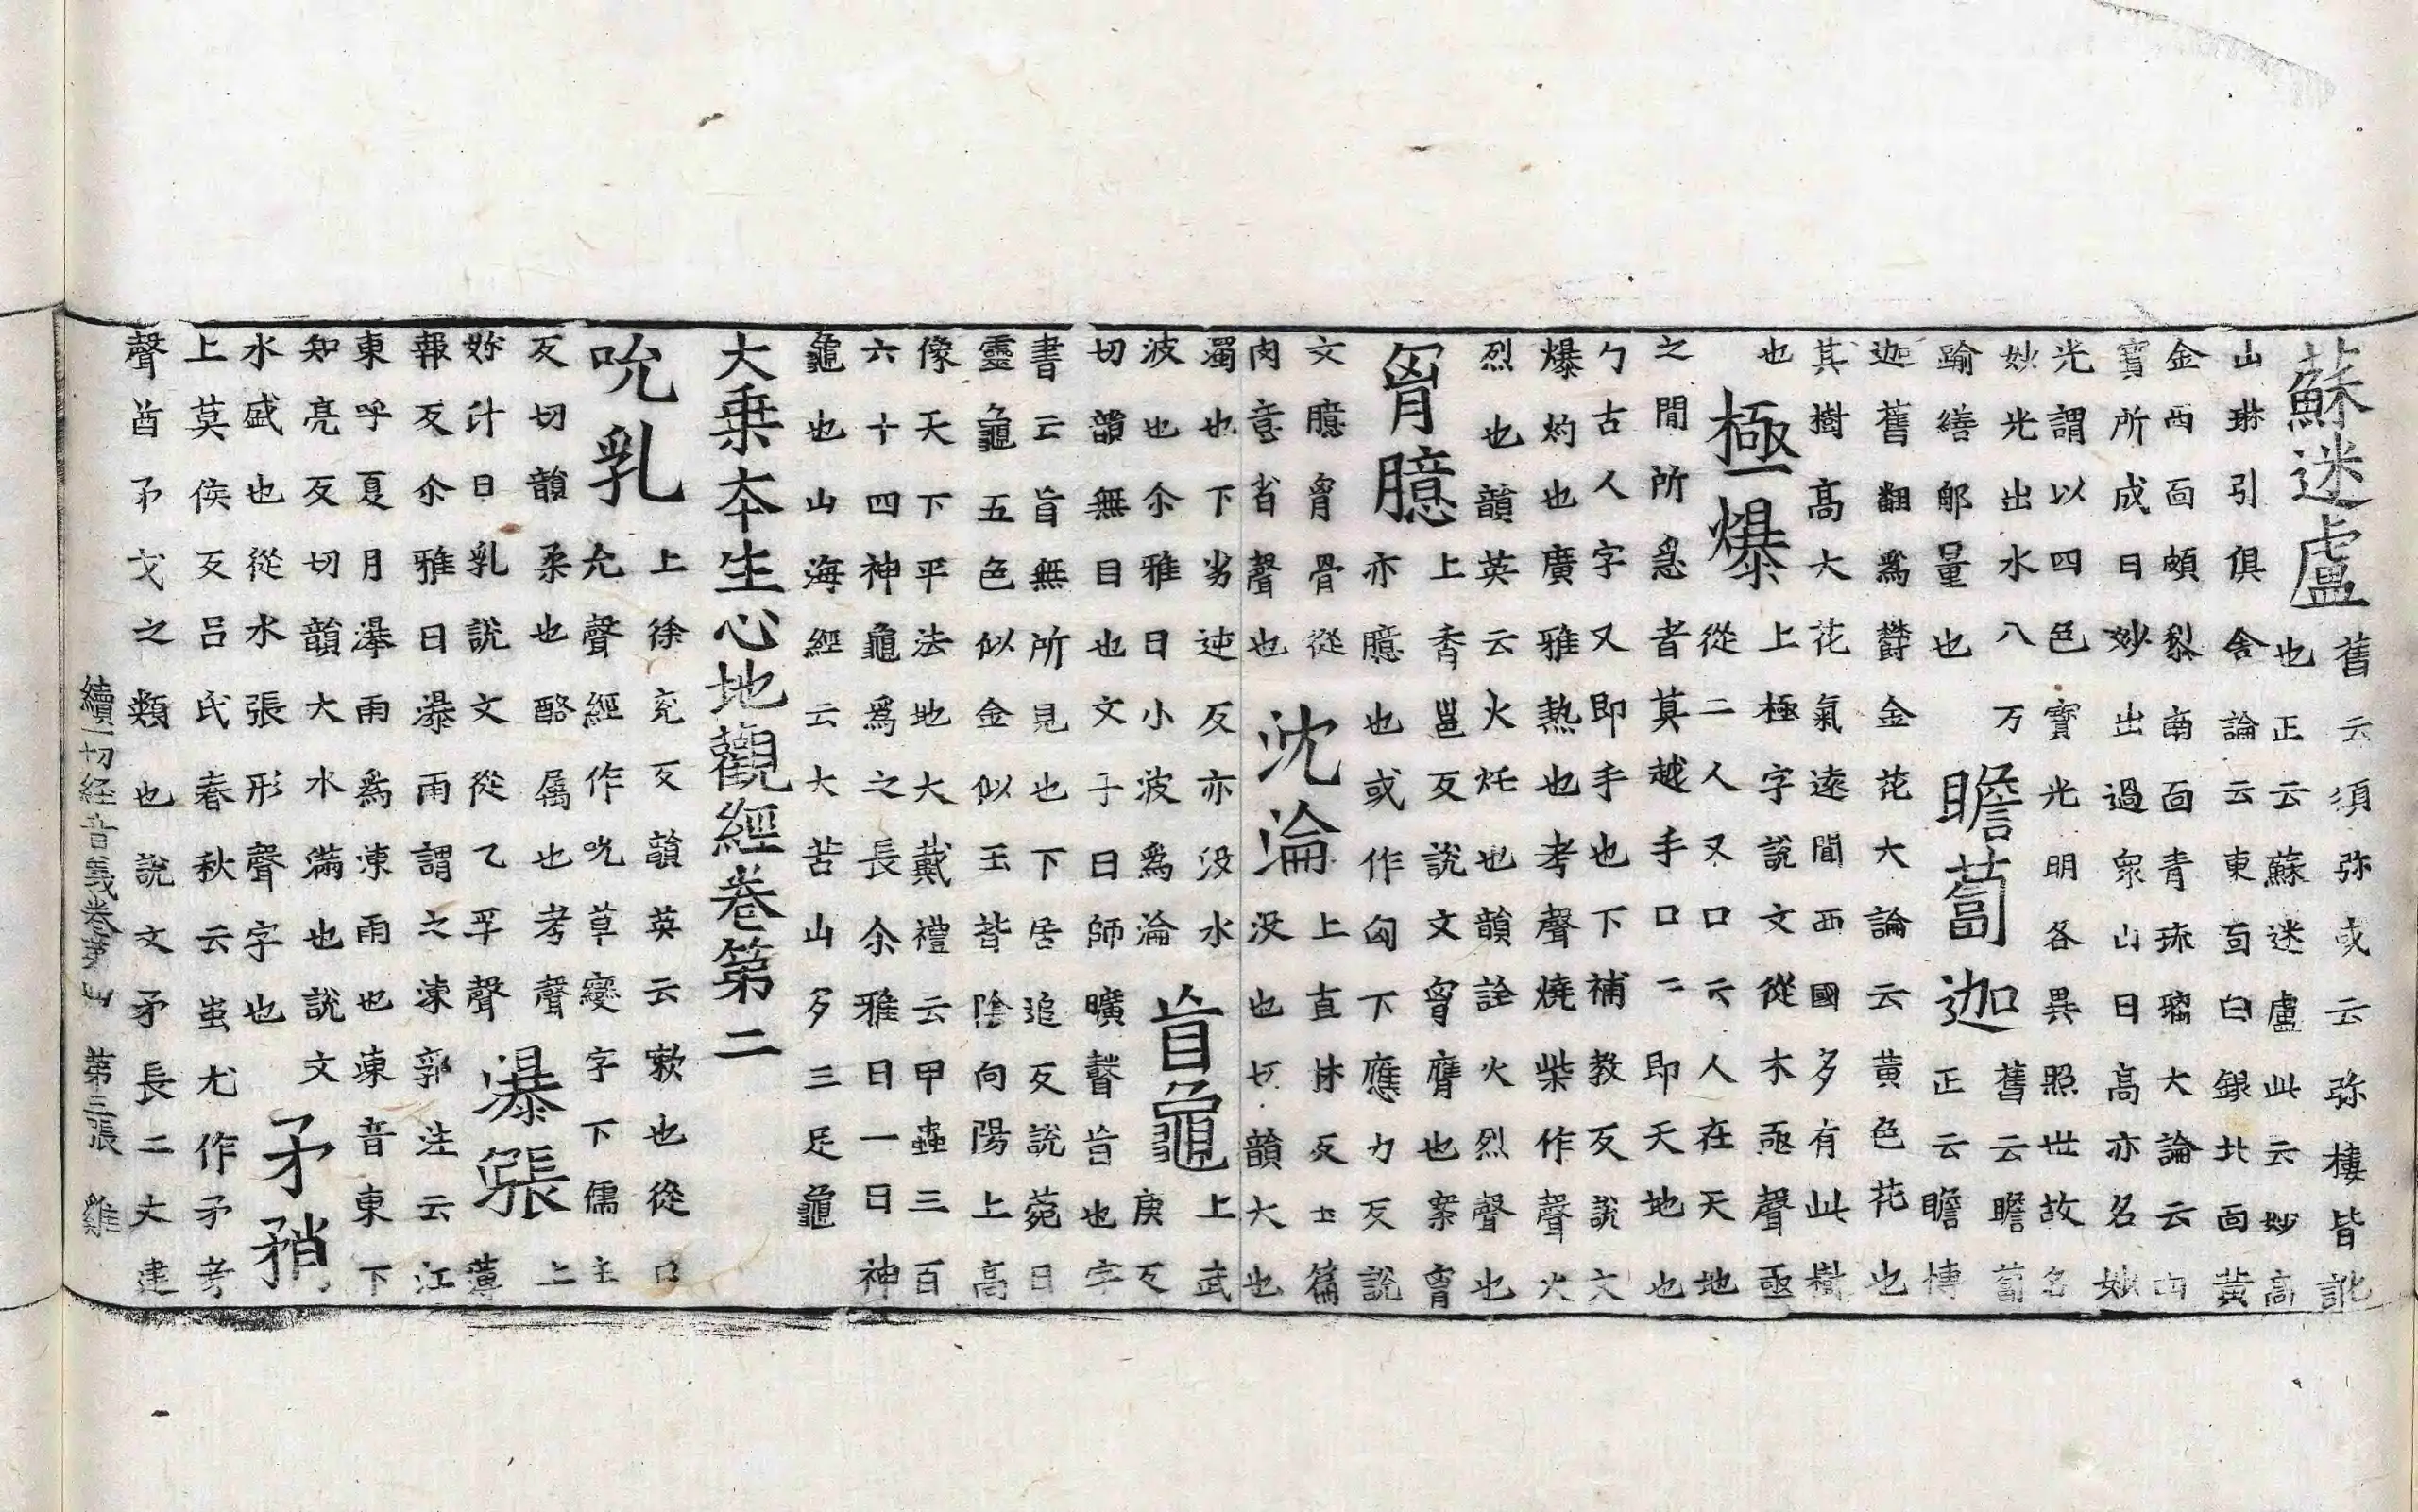 蘇迷盧 舊云須弥或云弥樓皆訛
也正云蘇迷盧此云妙高
山琳引俱舍論云東面白銀北面黃
金西面頗梨南面青琉璃大論云四
寳所成曰妙出過衆山曰高亦名妙
光謂以四色寳光明各異照世故名
妙光出水八万
踰繕那量也
瞻蔔迦 舊云瞻蔔
正云瞻博
迦舊翻為欝金花大論云黃色花也
其樹高大花氣遠聞西國多有此樹
也
極爆 上極字說文從木亟聲亟
從二人又口二人在天地
之間所急者莫越手口二即天地也
勹古人字又即手也下補教反說文
爆灼也廣雅熱也考聲燒柴作聲火
烈也韻英云火烞也韻詮火烈聲也
胷臆 上香邕反說文胷膺也案胷
亦臆也或作匈下應力反說
文臆胷骨從
肉意省聲也
沈淪 上直林反玉篇
没也切韻大也
濁也下劣迍反亦没水
波也尒雅曰小波為淪
盲龜 上武
庚反
切韻無目也文子曰師曠瞽盲也字
書云盲無所見也下居追反說菀曰
靈龜五色似金似玉背陰向陽上高
像天下平法地大戴禮云甲蟲三百
六十四神龜為之長尒雅曰一曰神
龜也山海經云大苦山多三足龜
大乗本生心地觀經卷第二
吮乳 上徐兖反韻英云嗽也從口
允聲經作吮草變字下儒主
反切韻柔也酪属也考聲
妳汁曰乳說文從乙孚聲
瀑漲 上
薄
報反尒雅曰瀑雨謂之涷郭注云江
東呼夏月瀑雨為涷雨也涷音東下
知亮反切韻大水滿也說文
水盛也從水張形聲字也
矛矟
上莫侯反吕氏春秋云蚩尤作矛考
聲酋矛戈之類也說文矛長二丈建
續一切經音義卷第四 第三張 雞